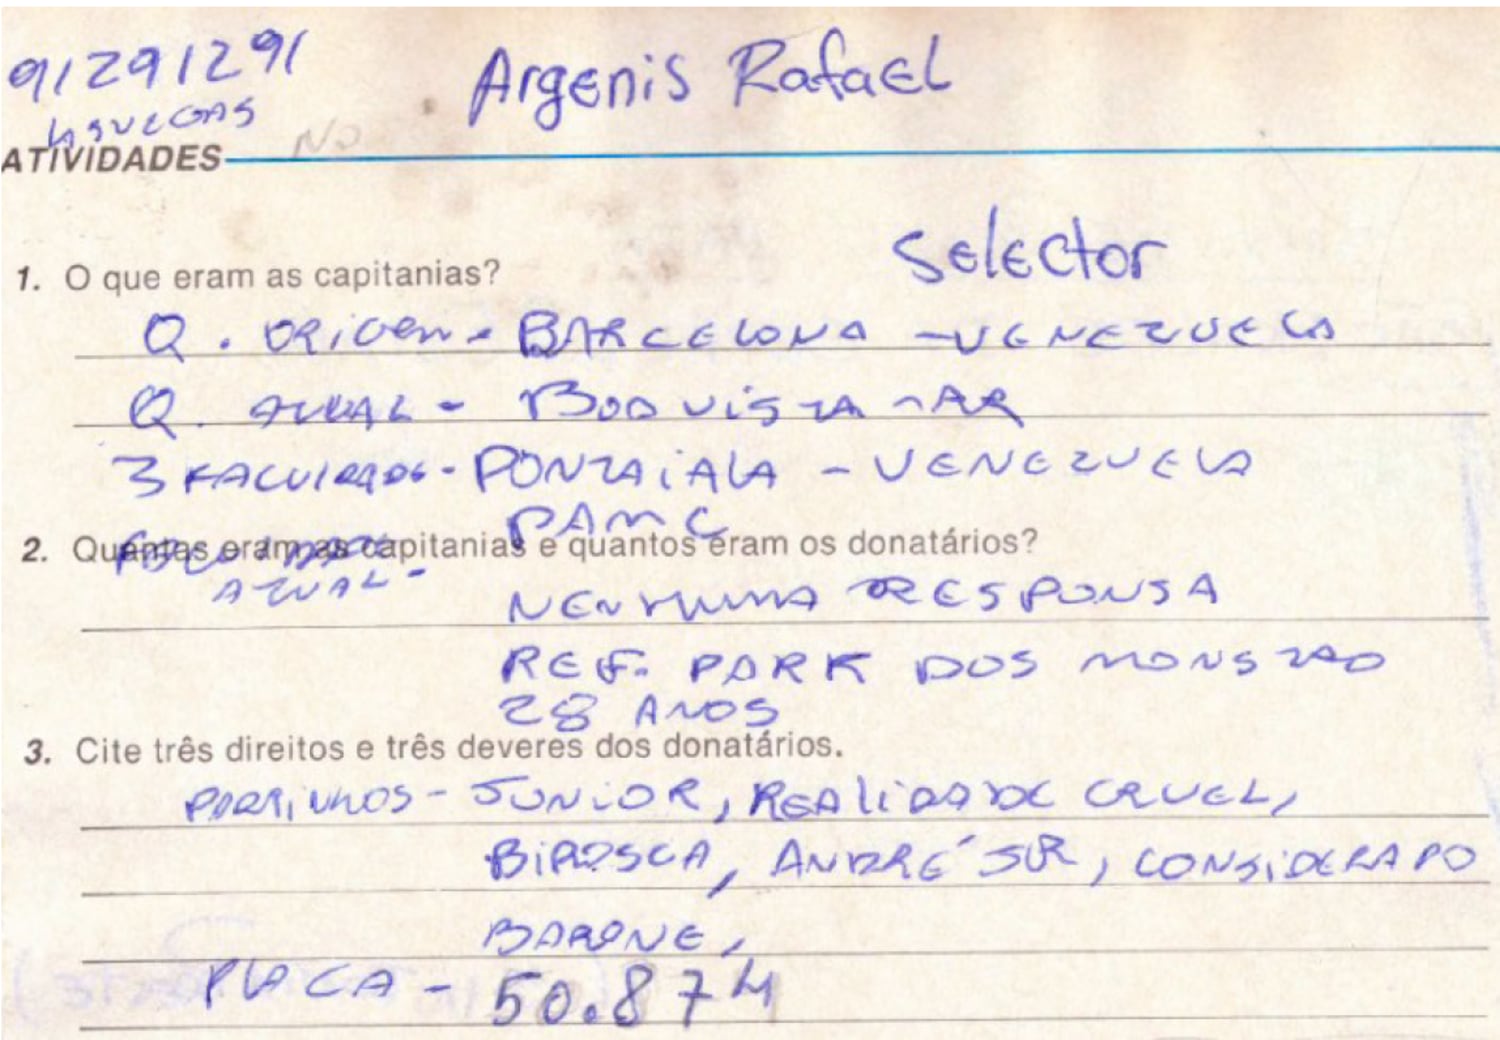 91291291
Argenis Rafael
No
ATIVIDADES
Selector
1. O que eram as capitanias?
Q. ORIGEM - BARCELONA - VENEZUELA
Q. ATUAL - BOA VISTA - RR
3 FACULDADES - PONTAIALA - VENEZUELA
PAMC
2. Quantas eram as capitanias e quantos eram os donatários?
FACULDADE
ATUAL -
NENHUMA RESPONSA
REF. PARK DOS MONSTRO
28 ANOS
3. Cite três direitos e três deveres dos donatários.
PADRINHOS - JUNIOR, REALIDADE CRUEL,
BIROSCA, ANDRÉ SUR, CONSIDERADO
BARONE,
PLACA - 50.874